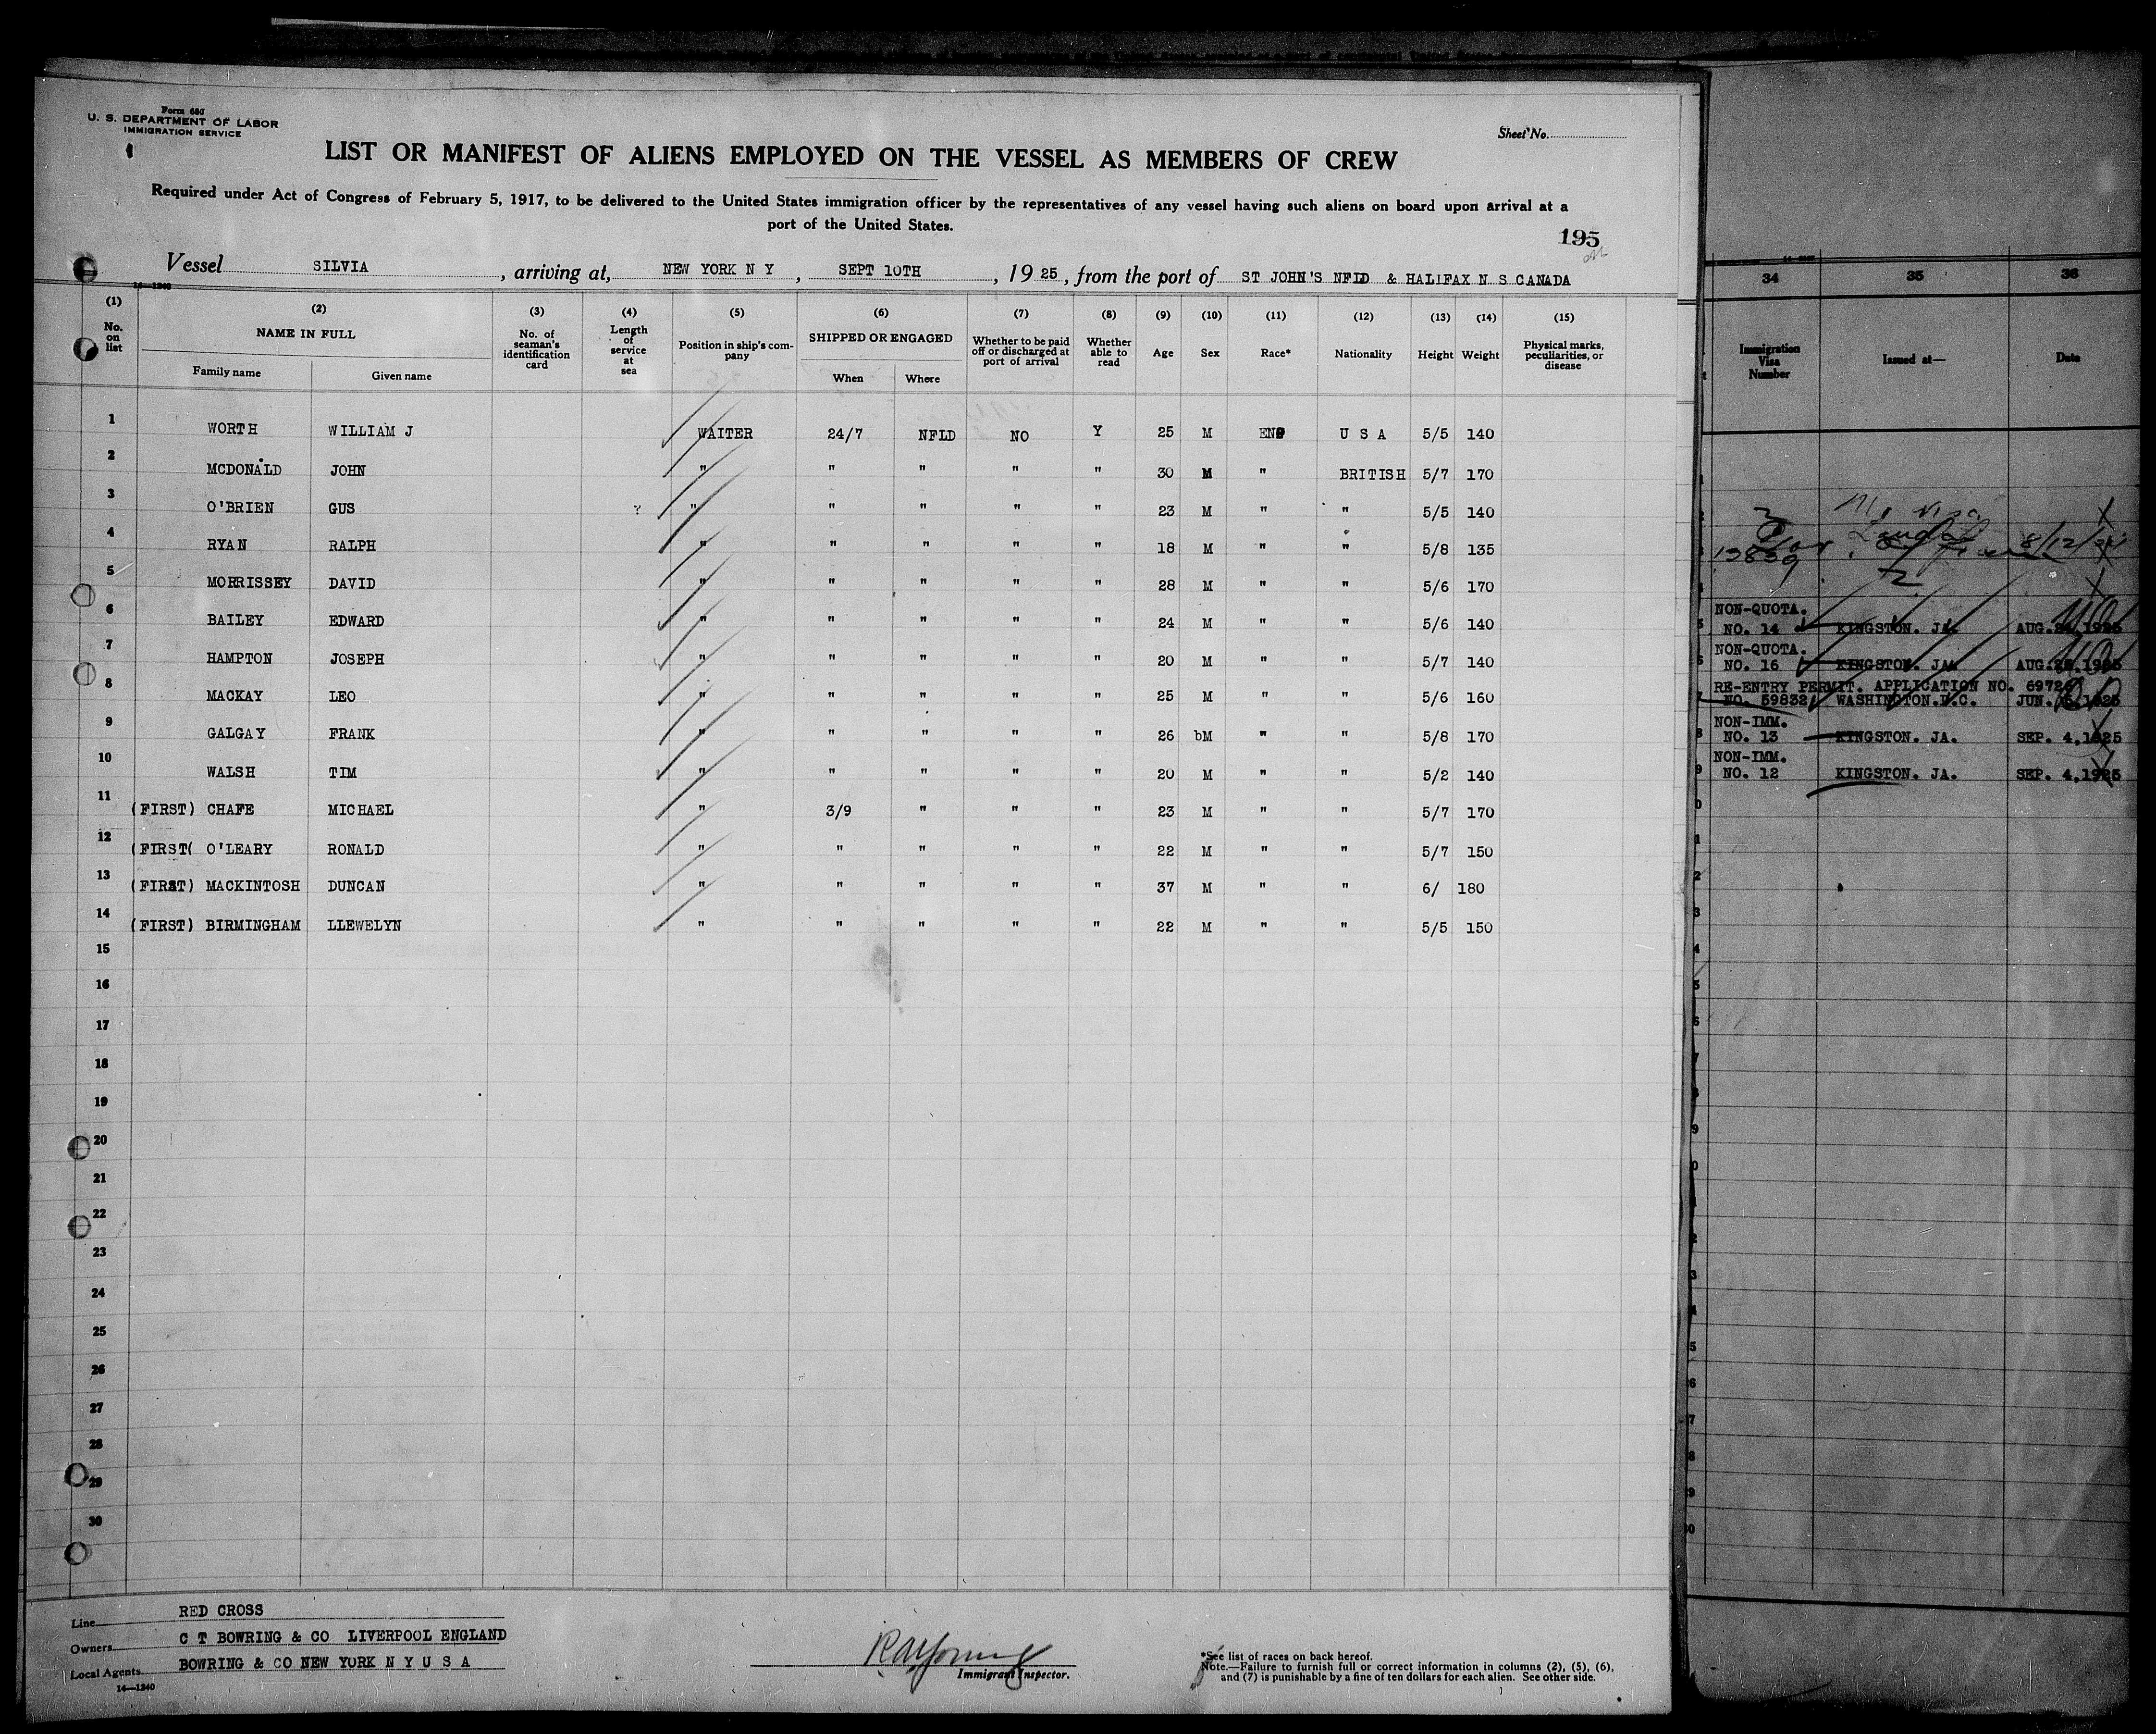 Form 680
U. S. DEPARTMENT OF LABOR
IMMIGRATION SERVICE
Sheet No.
LIST OR MANIFEST OF ALIENS EMPLOYED ON THE VESSEL AS MEMBERS OF CREW
Required under Act of Congress of February 5, 1917, to be delivered to the United States immigration officer by the representatives of any vessel having such aliens on board upon arrival at a
port of the United States.
195
Vessel SILVIA, arriving at, NEW YORK N Y, SEPT 10TH, 1925, from the port of ST JOHN'S NFLD & HALIFAX N S CANADA
14—1240
(1) (2) (3) (4) (5) (6) (7) (8) (9) (10) (11) (12) (13) (14) (15)
No. on list NAME IN FULL No. of seaman's identification card Length of service at sea Position in ship's company SHIPPED OR ENGAGED Whether to be paid off or discharged at port of arrival Whether able to read Age Sex Race* Nationality Height Weight Physical marks, peculiarities, or disease
Family name Given name When Where
1 WORTH WILLIAM J WAITER 24/7 NFLD NO Y 25 M ENG U S A 5/5 140
2 MCDONALD JOHN " " " " " 30 M " BRITISH 5/7 170
3 O'BRIEN GUS ? " " " " " 23 M " " 5/5 140
4 RYAN RALPH " " " " " 18 M " " 5/8 135
5 MORRISSEY DAVID " " " " " 28 M " " 5/6 170
6 BAILEY EDWARD " " " " " 24 M " " 5/6 140
7 HAMPTON JOSEPH " " " " " 20 M " " 5/7 140
8 MACKAY LEO " " " " " 25 M " " 5/6 160
9 GALGAY FRANK " " " " " 26 bM " " 5/8 170
10 WALSH TIM " " " " " 20 M " " 5/2 140
11 (FIRST) CHAFE MICHAEL " 3/9 " " " 23 M " " 5/7 170
12 (FIRST( O'LEARY RONALD " " " " " 22 M " " 5/7 150
13 (FIRST) MACKINTOSH DUNCAN " " " " " 37 M " " 6/ 180
14 (FIRST) BIRMINGHAM LLEWELYN " " " " " 22 M " " 5/5 150
15
16
17
18
19
20
21
22
23
24
25
26
27
28
29
30
Line RED CROSS
Owners C T BOWRING & CO LIVERPOOL ENGLAND
Local Agents BOWRING & CO NEW YORK N Y U S A
14—1240
Immigrant Inspector.
*See list of races on back hereof.
Note.—Failure to furnish full or correct information in columns (2), (5), (6),
and (7) is punishable by a fine of ten dollars for each alien. See other side.
34 35 36
Immigration Visa Number Issued at— Date
NON-QUOTA.
NO. 14 KINGSTON. JA. AUG. 1925
NON-QUOTA.
NO. 16 KINGSTON. JA. AUG. 1925
RE-ENTRY PERMIT. APPLICATION NO. 69726
NO. 59832 WASHINGTON.D.C. JUN. 1925
NON-IMM.
NO. 13 KINGSTON. JA. SEP. 4,1925
NON-IMM.
NO. 12 KINGSTON. JA. SEP. 4,1925